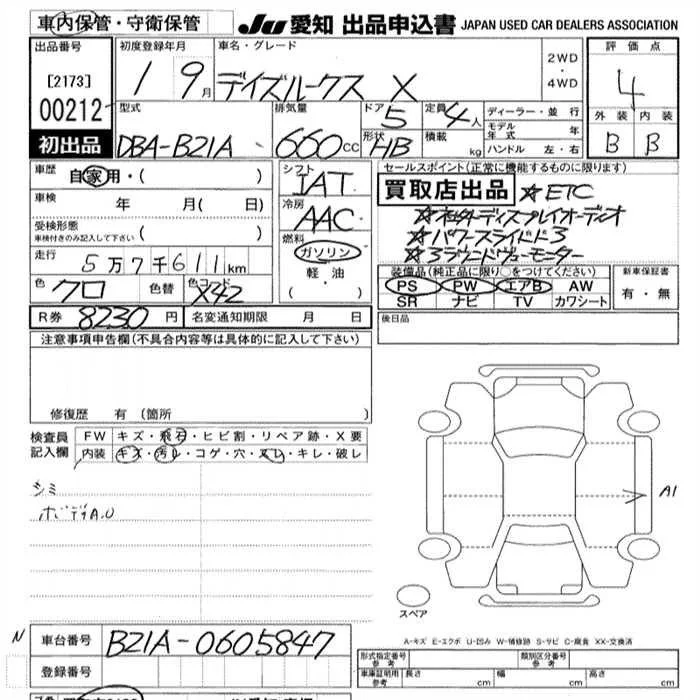 車内保管・守衛保管 JU 愛知 出品申込書 JAPAN USED CAR DEALERS ASSOCIATION
出品番号 初度登録年月 車名・グレード 2WD・4WD 評価点
[2173] 00212 1 9月 デイズルークス X 4
型式 排気量 ドア 定員 ディーラー・並行 外装 内装
初出品 DBA-B21A 660cc 5 4人 モデル年式 年 B B
形状 HB 積載 kg ハンドル 左・右
車歴 自家用・( ) シフト IAT セールスポイント(正常に機能するものに限ります)
車検 年 月( 日) 冷房 AAC 買取店出品 ☆ETC
☆社外ディスプレイオーディオ
受検形態 車検付きのみ記入して下さい ( ) 燃料 ガソリン・軽油・( ) ☆パワースライドドア
走行 5万7千611km
色 クロ 色替 色コード X42 装備品(純正品に限り○をつけてください) 新車保証書
PS PW エアB AW 有・無
SR ナビ TV カワシート
R券 8230円 名変通知期限 月 日 後日品
注意事項申告欄(不具合内容等は具体的に記入して下さい)
修復歴 有 (箇所 )
検査員記入欄 FW キズ・飛石・ヒビ割・リペア跡・X要
内装 キズ・汚レ・コゲ・穴・スレ・キレ・破レ
シミ
ボデーA.U
A1
スペア
A-キズ E-エクボ U-凹み W-補修跡 S-サビ C-腐食 XX-交換済
N 車台番号 B21A-0605847
登録番号
形式指定番号 参考 類別区分番号 参考
車庫証明用 参考 長さ cm 幅 cm 高さ cm